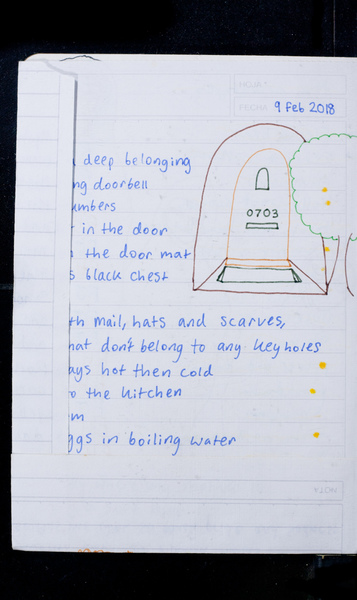 HOJA:
FECHA: 9 Feb 2018
deep belonging
doorbell
0703
in the door
the door mat
black chest
mail, hats and scarves,
don't belong to any keyholes
hot then cold
the kitchen
in boiling water
NOTA